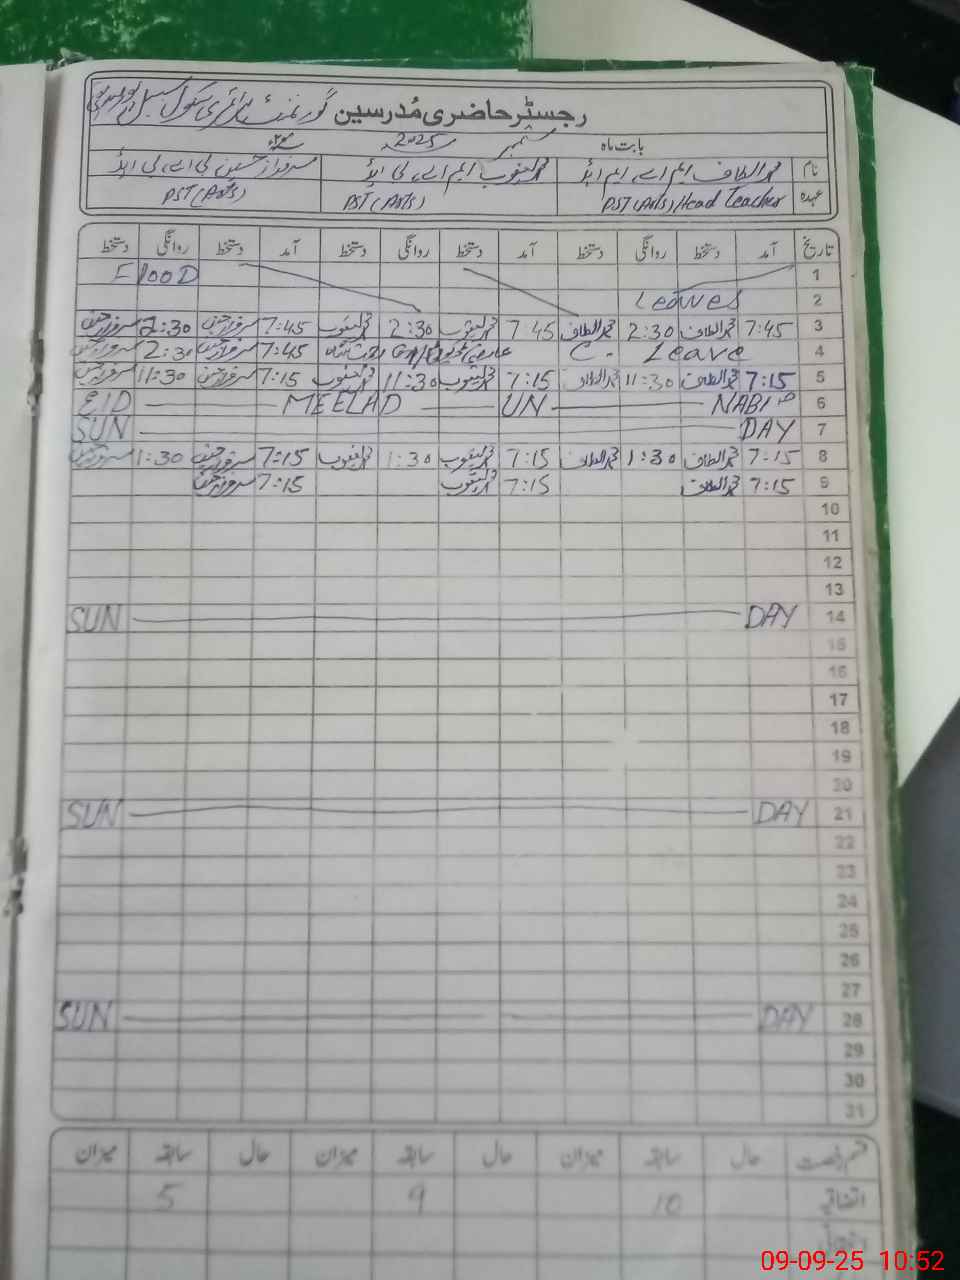 رجسٹر حاضری مُدرسین گورنمنٹ پرائمری سکول
بابت ماہ ستمبر 2025ء
نام محمد الطاف ایم اے، ایم ایڈ محمد یعقوب ایم اے، بی ایڈ سرفراز حسین بی اے، بی ایڈ
عہدہ PST (Arts) Head Teacher PST (Arts) PST (Arts)
تاریخ آمد دستخط روانگی دستخط آمد دستخط روانگی دستخط آمد دستخط روانگی دستخط
1 FlooD
2 Leaves
3 7:45 محمد الطاف 2:30 محمد الطاف 7:45 محمد یعقوب 2:30 محمد یعقوب 7:45 سرفراز حسین 2:30 سرفراز حسین
4 C. Leave عارضی ڈیوٹی 7:45 سرفراز حسین 2:30 سرفراز حسین
5 7:15 محمد الطاف 11:30 محمد الطاف 7:15 محمد یعقوب 11:30 محمد یعقوب 7:15 سرفراز حسین 11:30 سرفراز حسین
EID MEELAD UN NABI 6
SUN DAY 7
8 7:15 محمد الطاف 1:30 محمد الطاف 7:15 محمد یعقوب 1:30 محمد یعقوب 7:15 سرفراز حسین 1:30 سرفراز حسین
9 7:15 محمد الطاف 7:15 محمد یعقوب 7:15 سرفراز حسین
10
11
12
13
SUN DAY 14
15
16
17
18
19
20
SUN DAY 21
22
23
24
25
26
27
SUN DAY 28
29
30
31
قسم رخصت حال سابقہ میزان حال سابقہ میزان حال سابقہ میزان
اتفاقیہ 10 9 5
09-09-25 10:52